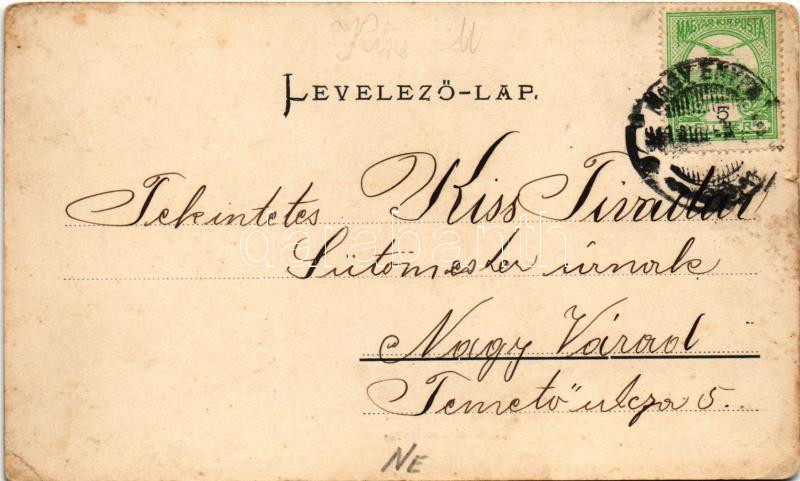 Kiss M
MAGYAR KIR. POSTA
5
NAGY ENYED
LEVELEZŐ-LAP.
Tekintetes Kiss Tivadar
Sütőmester úrnak
Nagy Várad
Temető utcza 5.
NE
darabanth